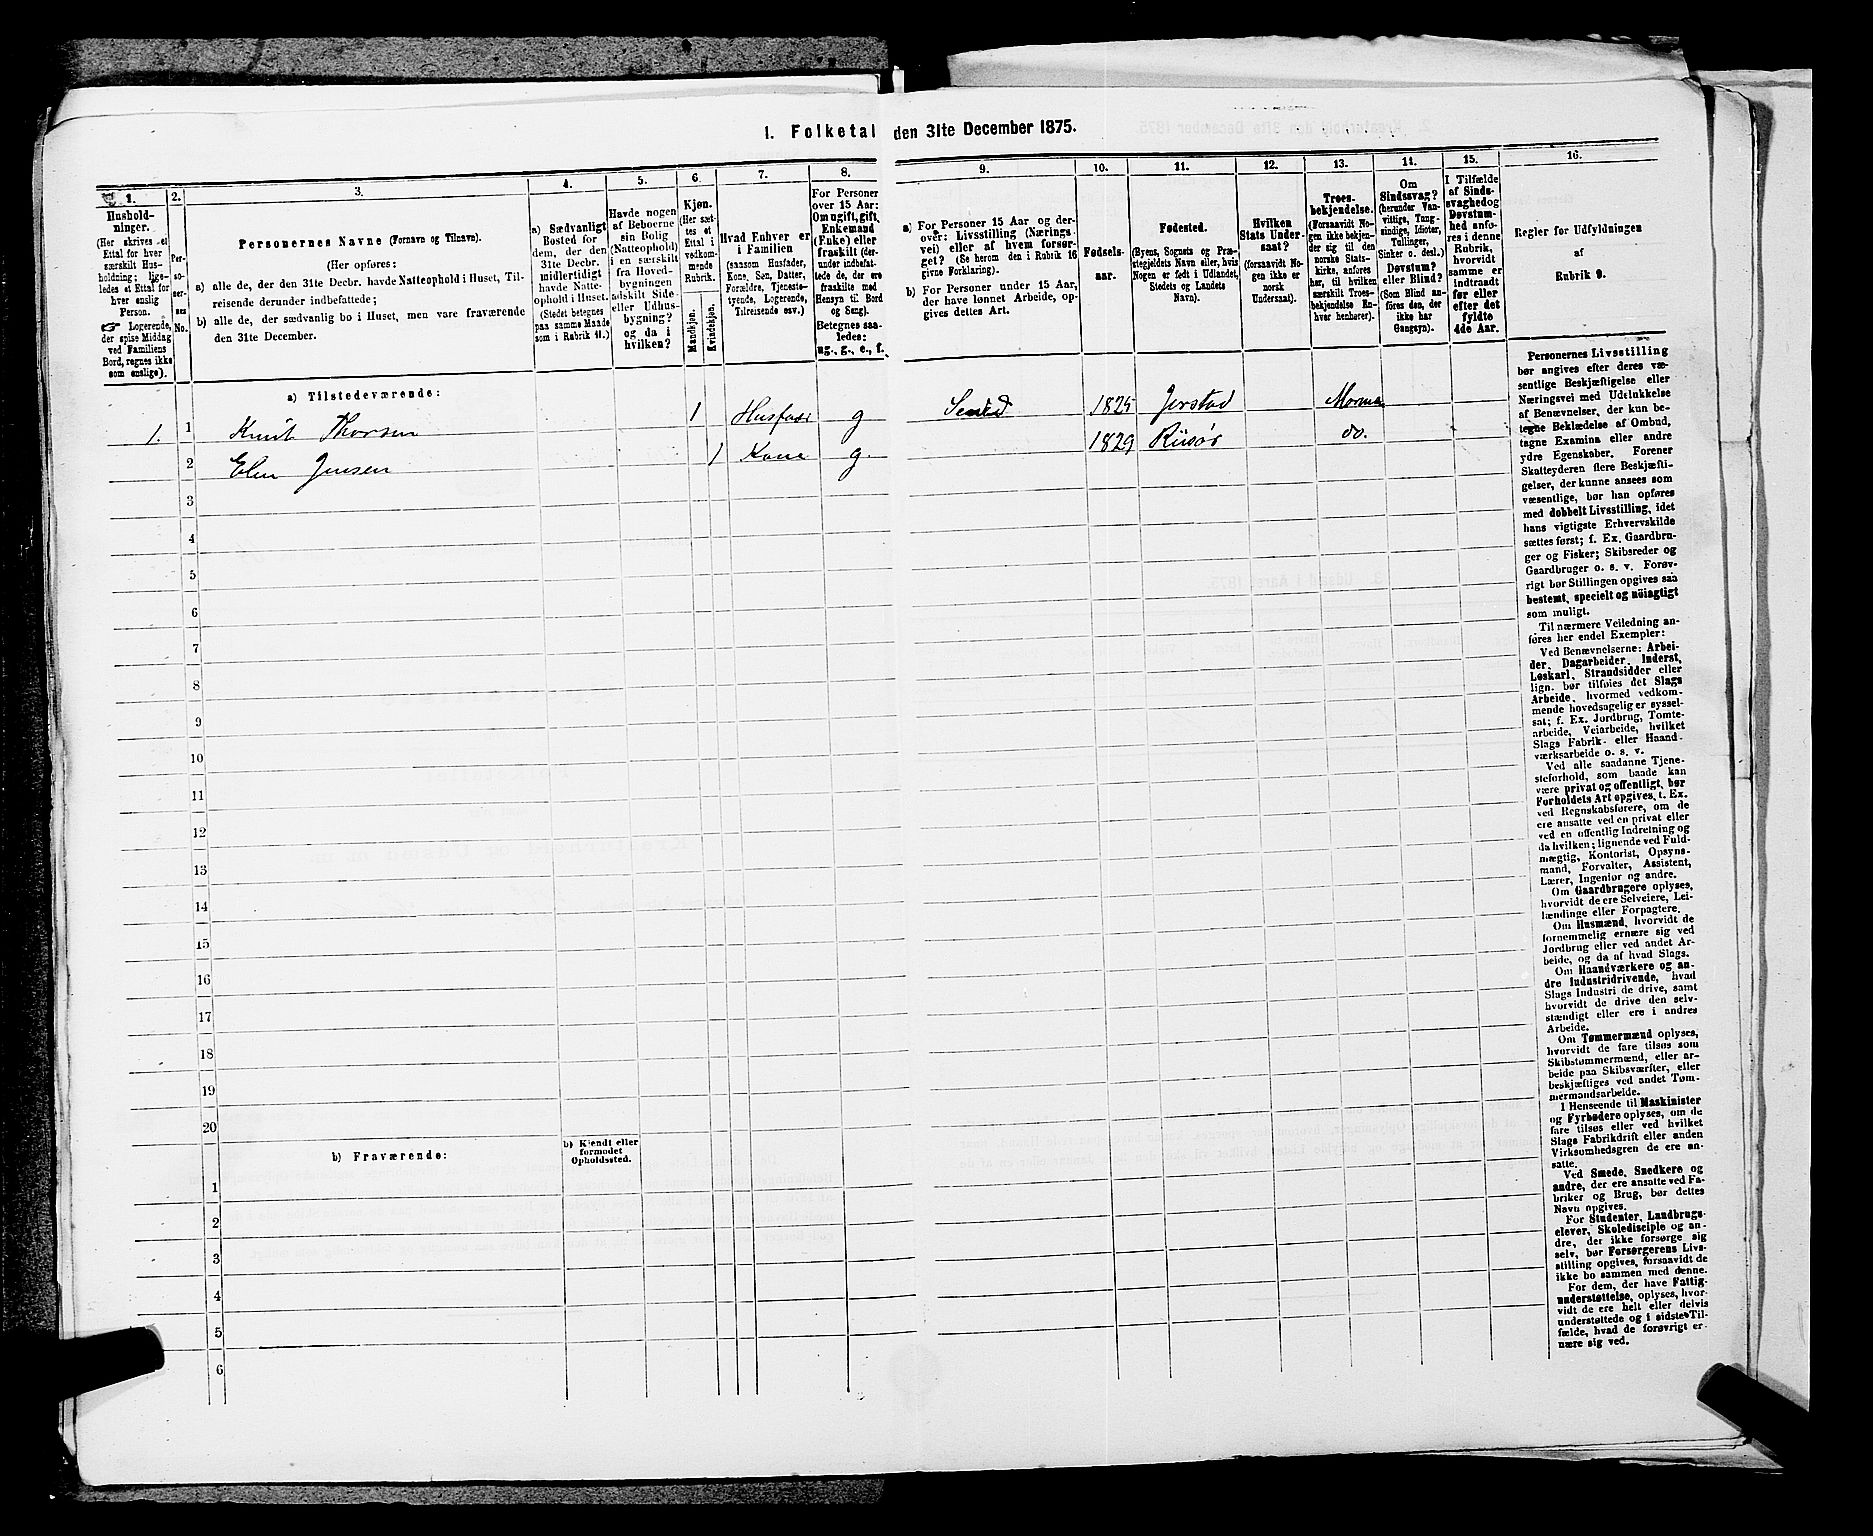 1. Folketal den 31te December 1875.
1.
Hushold-
ninger.
(Her skrives et
Ettal for hver
særskilt Hus-
holdning; lige-
ledes et Ettal for
hver enslig
Person.
☞ Logerende,
der spise Middag
ved Familiens
Bord, regnes ikke
som enslige).
2.
Per-
so-
ner-
nes
No.
3.
Personernes Navne (Fornavn og Tilnavn).
(Her opføres:
a) alle de, der den 31te Decbr. havde Natteophold i Huset, Til-
reisende derunder indbefattede;
b) alle de, der sædvanlig bo i Huset, men vare fraværende
den 31te December.
4.
a) Sædvanligt
Bosted for
dem, der den
31te Decbr.
midlertidigt
havde Natte-
ophold i Huset.
(Stedet betegnes
paa samme Maade
som i Rubrik 11.)
5.
Havde nogen
af Beboerne
sin Bolig
(Natteophold)
i en særskilt
fra Hoved-
bygningen
adskilt Side-
eller Udhus-
bygning?
og da i
hvilken?
6.
Kjøn.
(Her sæt-
tes et
Ettal i
vedkom-
mende
Rubrik.
Mandkjøn.
Kvindekjøn.
7.
Hvad Enhver er
i Familien
(saasom Husfader,
Kone, Søn, Datter,
Forældre, Tjeneste-
tyende, Logerende,
Tilreisende osv.)
8.
For Personer
over 15 Aar:
Om ugift, gift,
Enkemand
(Enke) eller
fraskilt (der-
under indbefat-
tede de, der ere
fraskilte med
Hensyn til Bord
og Seng).
Betegnes saa-
ledes:
ug., g., e., f.
9.
a) For Personer 15 Aar og der-
over: Livsstilling (Nærings-
vei) eller af hvem forsør-
get? (Se herom den i Rubrik 16
givne Forklaring).
b) For Personer under 15 Aar,
der have lønnet Arbeide, op-
gives dettes Art.
10.
Fødsels-
aar.
11.
Fødested.
(Byens, Sognets og Præ-
stegjeldets Navn eller, hvis
Nogen er født i Udlandet,
Stedets og Landets
Navn).
12.
Hvilken
Stats Under-
saat?
(forsaavidt No-
gen ikke er
norsk
Undersaat).
13.
Troes-
bekjendelse.
(Forsaavidt No-
gen ikke bekjen-
der sig til den
norske Stats-
kirke, anføres
her, til hvilken
særskilt Troes-
bekjendelse En-
hver henhører).
14.
Om
Sindssvag?
(herunder Van-
vittige, Tung-
sindige, Idioter,
Tullinger,
Sinker o. desl.)
Døvstum?
eller Blind?
(Som Blind an-
føres den, der
ikke har
Gangsyn).
15.
I Tilfælde
af Sinds-
svaghed og
Døvstum-
hed anfø-
res i denne
Rubrik,
hvorvidt
samme er
indtraadt
før eller
efter det
fyldte
4de Aar.
16.
Regler for Udfyldningen
af
Rubrik 9.
a) Tilstedeværende:
1. 1 Knut Thorsen 1 Husfaer g Smed 1825 Jerstad Mormon
2 Elen Jensen 1 Kone g. 1829 Riisør do.
3
4
5
6
7
8
9
10
11
12
13
14
15
16
17
18
19
20
b) Fraværende:
b) Kjendt eller
formodet
Opholdssted.
1
2
3
4
5
6
Personernes Livsstilling
bør angives efter deres væ-
sentlige Beskjæftigelse eller
Næringsvei med Udelukkelse
af Benævnelser, der kun be-
tegne Beklædelse af Ombud,
tagne Examina eller andre
ydre Egenskaber. Forener
Skatteyderen flere Beskjæfti-
gelser, der kunne ansees som
væsentlige, bør han opføres
med dobbelt Livsstilling, idet
hans vigtigste Erhvervskilde
sættes først; f. Ex. Gaardbru-
ger og Fisker; Skibsreder og
Gaardbruger o. s. v. Forøv-
rigt bør Stillingen opgives saa
bestemt, specielt og nøiagtigt
som muligt.
Til nærmere Veiledning an-
føres her endel Exempler:
Ved Benævnelserne: Arbei-
der, Dagarbeider, Inderst,
Løskarl, Strandsidder eller
lign. bør tilføies det Slags
Arbeide, hvormed vedkom-
mende hovedsagelig er syssel-
sat; f. Ex. Jordbrug, Tomte-
arbeide, Veiarbeide, hvilket
Slags Fabrik- eller Haand-
værksarbeide o. s. v.
Ved alle saadanne Tjene-
steforhold, som baade kan
være privat og offentligt, bør
Forholdets Art opgives, t. Ex.
ved Regnskabsførere, om de
ere ansatte ved en privat eller
ved en offentlig Indretning og
da hvilken; lignende ved Fuld-
mægtig, Kontorist, Opsyns-
mand, Forvalter, Assistent,
Lærer, Ingeniør og andre.
Om Gaardbrugere oplyses,
hvorvidt de ere Selveiere, Lei-
lændinge eller Forpagtere.
Om Husmænd, hvorvidt de
fornemmelig ernære sig ved
Jordbrug eller ved andet Ar-
beide, og da af hvad Slags.
Om Haandværkere og an-
dre Industridrivende, hvad
Slags Industri de drive, samt
hvorvidt de drive den selv-
stændigt eller ere i andres
Arbeide.
Om Tømmermænd oplyses,
hvorvidt de fare tilsøs som
Skibstømmermænd, eller ar-
beide paa Skibsværfter, eller
beskjæftiges ved andet Tøm-
mermandsarbeide.
I Henseende til Maskinister
og Fyrbødere oplyses, om de
fare tilsøs eller ved hvilket
Slags Fabrikdrift eller anden
Virksomhedsgren de ere an-
satte.
Ved Smede, Snedkere og
andre, der ere ansatte ved Fa-
briker og Brug, bør dettes
Navn opgives.
For Studenter, Landbrugs-
elever, Skoledisciple og an-
dre, der ikke forsørge sig
selv, bør Forsørgerens Livs-
stilling opgives, forsaavidt de
ikke bo sammen med denne.
For dem, der have Fattig-
understøttelse, oplyses, hvor-
vidt de ere helt eller delvis
understøttede og i sidste Til-
fælde, hvad de forøvrigt er-
nære sig ved.